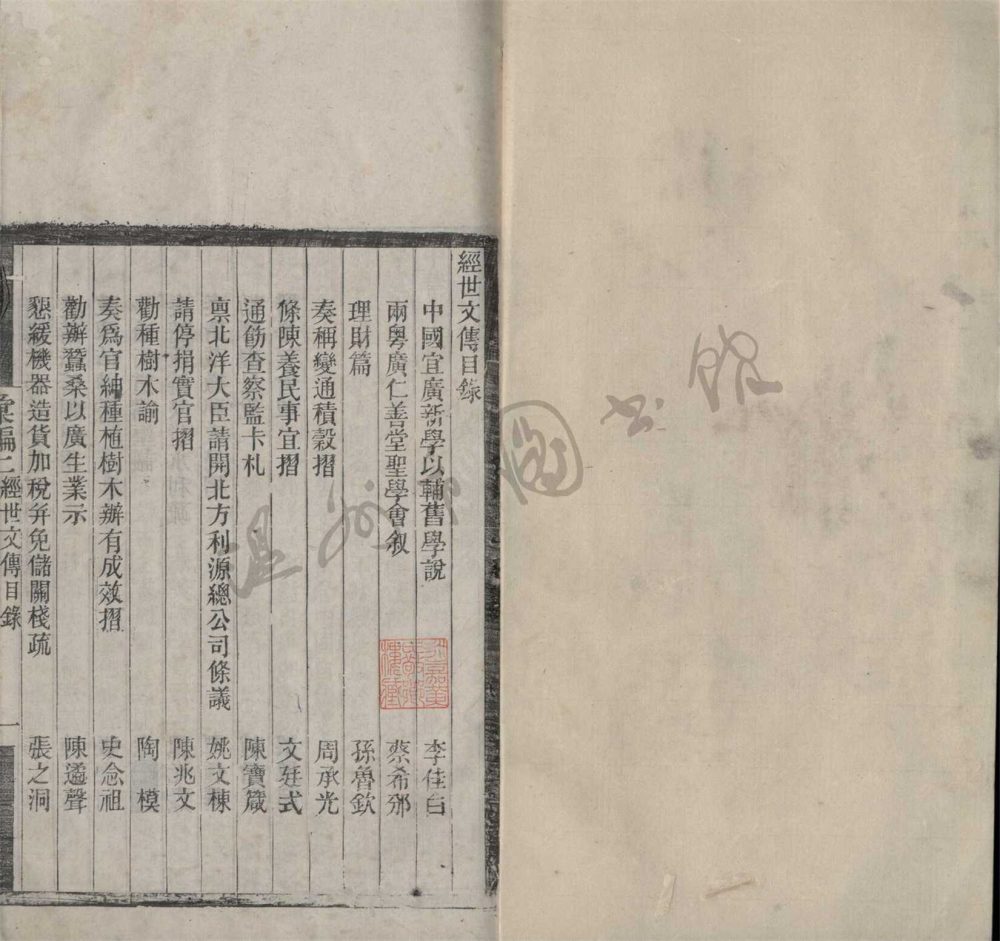 經世文傳目錄
中國宜廣新學以輔舊學說 李佳白
兩粵廣仁善堂聖學會敘 蔡希邠
理財篇 孫魯欽
奏稱變通積穀摺 周承光
條陳養民事宜摺 文廷式
通飭查察監卡札 陳寶箴
禀北洋大臣請開北方利源總公司條議 姚文棟
請停捐實官摺 陳兆文
勸種樹木諭 陶模
奏爲官紳種植樹木辦有成效摺 史念祖
勸辦蠶桑以廣生業示 陳遹聲
懇緩機器造貨加稅并免儲關棧疏 張之洞
彙編二經世文傳目錄 一
溫州市圖書館